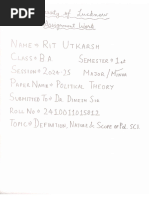 University of Lucknow
Assignment Work
Name = Rit Utkarsh
Class = BA Semester = 1st
Session = 2024-25 Major / Minor
Paper Name = Political Theory
Submitted To = Dr. Dinesh Sir
Roll No = 2410011015812
Topic = Definition, Nature & Scope of Pol. Sci.